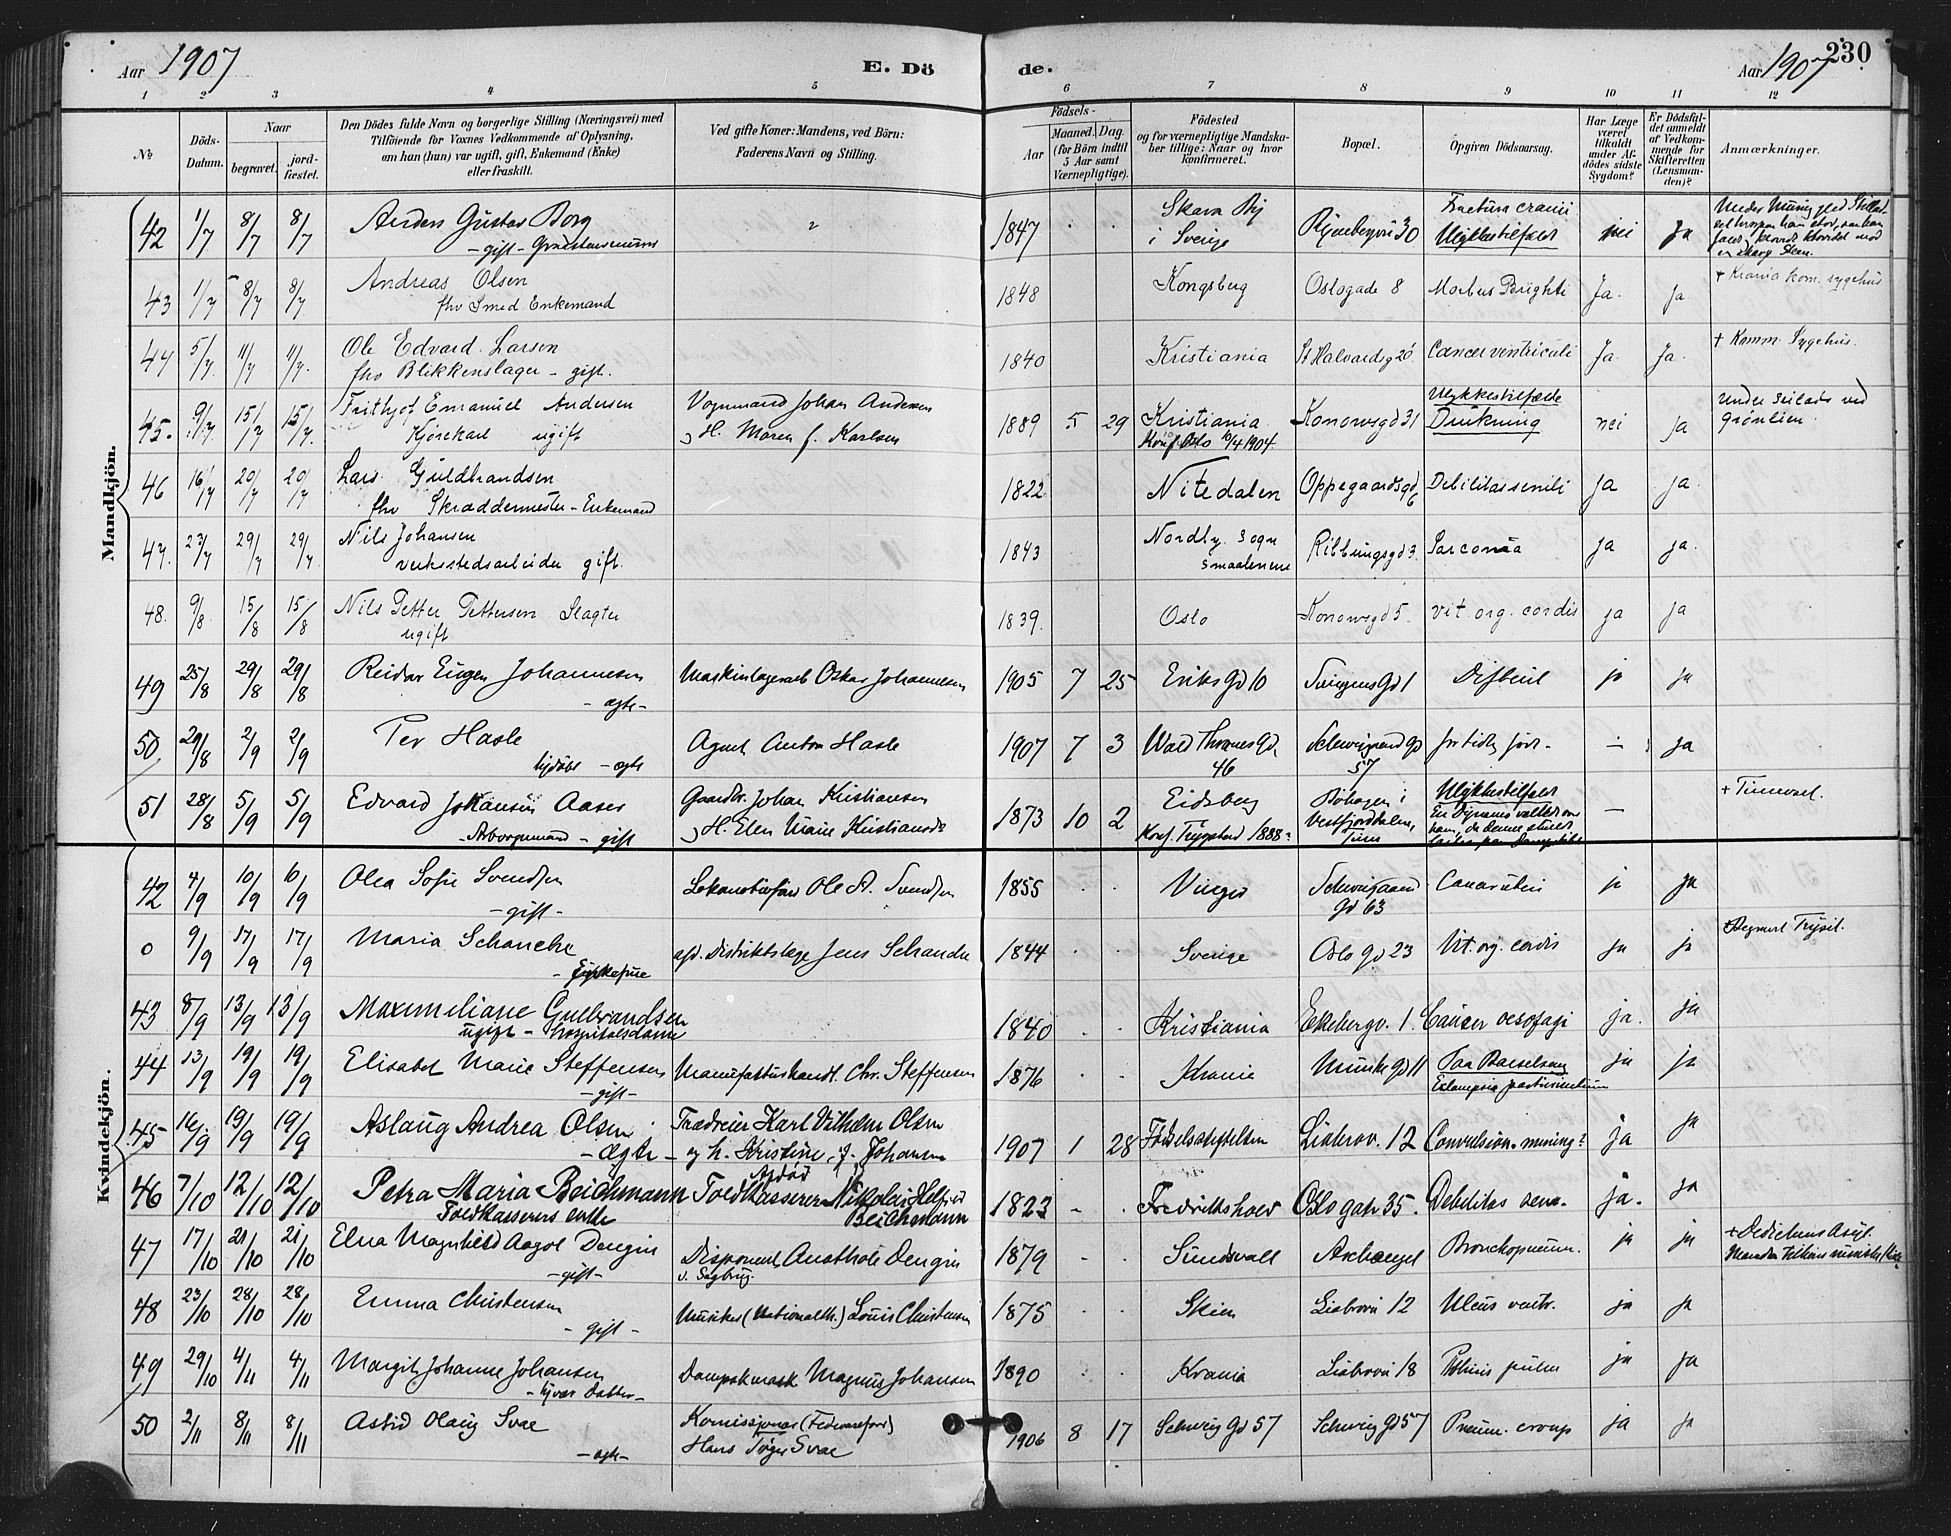 Aar 1907
E. Dö
de.
Aar 1907
230
1 2 3 4 5 6 7 8 9 10 11 12
№
Döds-Datum.
Naar
begravet.
jordfæstet.
Den Dödes fulde Navn og borgerlige Stilling (Næringsvei) med
Tilföiende for Voxnes Vedkommende af Oplysning,
om han (hun) var ugift, gift, Enkemand (Enke)
eller fraskilt.
Ved gifte Koner: Mandens, ved Börn:
Faderens Navn og Stilling.
Födsels-
Aar
Maaned.
Dag.
(for Börn indtil
5 Aar samt
Værnepligtige).
Födested
og for værnepligtige Mandska-
ber tillige: Naar og hvor
konfirmeret.
Bopæl.
Opgiven Dödsaarsag.
Har Læge
været
tilkaldt
under Af-
dödes sidste
Sygdom?
Er Dödsfal-
det anmeldt
af Vedkom-
mende for
Skifteretten
(Lensman-
den)?
Anmærkninger.
Mandkjön.
42 1/7 8/7 8/7 Anders Gustav Borg 1847 Skara By Fractura cranii
gift i Sverige 30 Ulykkestilfælde nei ja
43 1/7 8/7 8/7 Andreas Olsen 1848 Kongsberg Oslogade 8 Morbus Brighti Ja. ja + Krania kom. sygehus
fhv Smed. Enkemand
44 5/7 11/7 11/7 Ole Edvard Larsen 1840 Kristiania St Halvardsg 20 Cancer ventriculi Ja. Ja. + Komm. Sygehus.
fhv Blikkenslager - gift.
45. 9/7 15/7 15/7 Frithjof Emanuel Andersen Vognmand Johan Andersen 1889 5 29 Kristiania Konowsgd 31 Ulykkestilfælde Drukning nei ja under seilads ved
Kjørekarl ugift H. Maren f. Karlsen Konf. Oslo 10/4 1904. Grønlien
46 16/7 20/7 20/7 Lars Guldbrandsen 1822 Nitedalen Oppegaardsgd 6 Debilitas senili ja ja.
fhv Skræddermester - Enkemand
47. 23/7 29/7 29/7 Nils Johansen 1843 Nordby Sogn Ribbungsgd 3. Sarcoma ja ja.
verkstedsarbeider gift. Smaalenene
48. 9/8 15/8 15/8 Nils Petter Pettersen Slagter 1839. Oslo Konowsgd 5. vit. org. cordis ja ja
ugift
49 25/8 29/8 29/8 Reidar Eugen Johannesen Oskar Johannesen 1905 7 25 Eriks Gd 10 Gd 1 ja ja
- ægte -
50 29/8 2/9 2/9 Per Hasle Agent Anton Hasle 1907 7 3 Wald Thranes Gd. Schweigaard Gd for tidlig født - — ja
hjdøbt - ægte 46 57
51 28/8 5/9 5/9 Edvard Johansen Aaser Gaardbr. Johan Kristiansen 1873 10 2 Eidsberg i Ulykkestilfælde —
- gift H. Elen Marie Kristiansd. Konf. Trygstad 1888 Vestfjorddalen,
Kvindekjön.
42 4/9 10/9 10/9 Olea Sofie Svendsen Ole A. Svendsen 1855 Vinger Schweigaard Cancer uteri ja ja
- gift - Gd 63
0 9/9 17/9 17/9 Maria Schancke afd. Distriktslæge Jens Schancke 1844 Sverige Oslo Gd 23 Vit. org. cordis ja ja
43 8/9 13/9 13/9 Maximiliane Gulbrandsen 1840 Kristiania Ekebergv. 1. Cancer oesofagi ja. ja
ugift - hospitalsdame
44 13/9 19/9 19/9 Elisabet Marie Steffensen Manufakturhandl. Chr. Steffensen 1876 Krania Munke Gd 11 Paa Barselseng ja ja
- gift - Eclampsia parturientium
45 16/9 19/9 19/9 Aslaug Andrea Olsen Trædreier Karl Vilhelm Olsen 1907 1 28 Fødselsstiftelsen Liabrov. 12 Convulsion. mening? ja ja
- ægte - og h. Kristine, f. Johansen
46 7/10 12/10 12/10 Petra Maria Beichmann Afdød Toldkasserer Nikolai 1823 Fredrikshald Oslo gate 35. Debilitas sene. ja. ja
Toldkasserers enke Beichmann
47 17/10 21/10 21/10 Elna Magnhild Aagot Dengin Disponent Anathole Dengin 1879 Sundsvall Archangel Bronchopneum. ja ja + Dedichens Asyl.
- gift - v. Sagbrug.
48 23/10 28/10 28/10 Emma Christensen Musiker (Nationalth.) Louis Christensen 1875 Skien Liabrovn 12 Ulcus ventr. ja ja
- gift -
49 29/10 4/11 4/11 Margit Johanne Johansen Magnus Johansen 1890 Krania Liabrovn 18 Phthisis pulm ja ja
- hjvær Datter -
50 2/11 8/11 8/11 Astrid Olaug Svae Komissjonær 1906 8 17 Schweig Gd 57 Schweig Gd 57 Pneum. croup ja ja
- ægte - Hans Svae